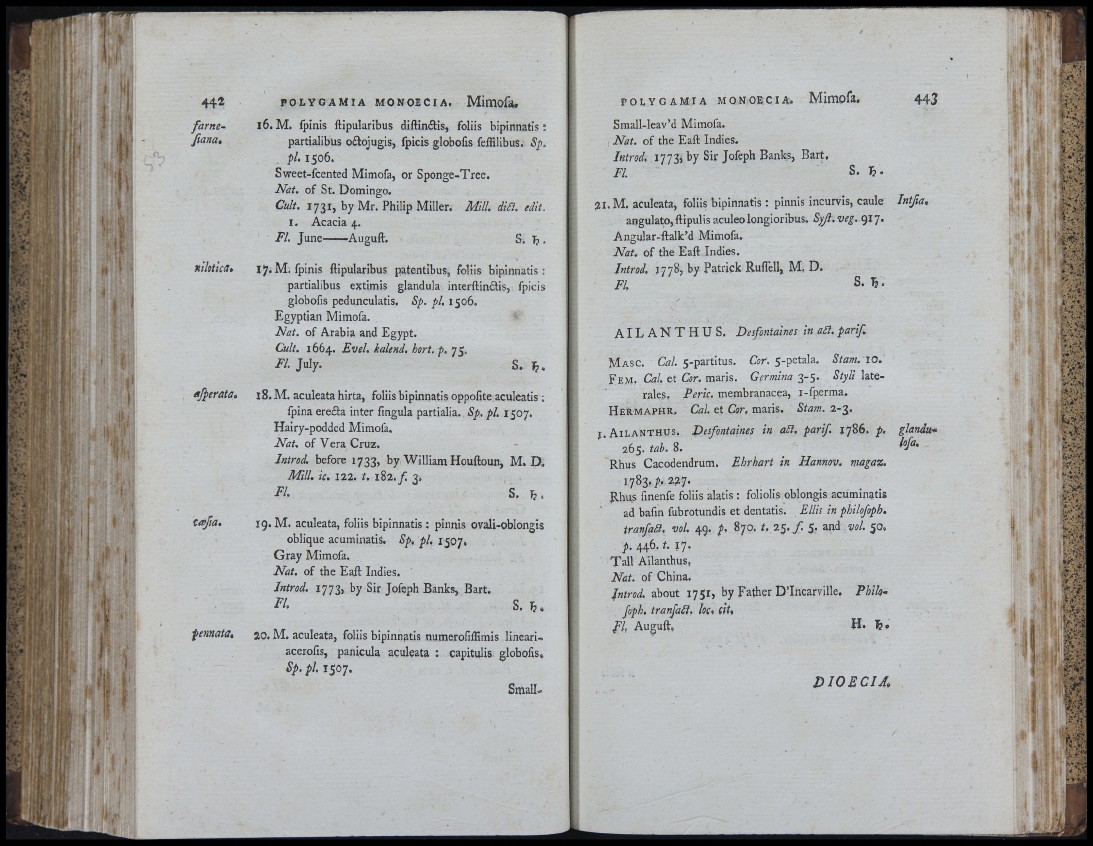 442 POLYGAMIA MONOECIA. Mimoſa.
farne- 16. M. ſpinis ſtipularibus diſtinctis, foliis bipinnatis :
ſiana. partialibus octojugis, ſpicis globoſis ſeſſilibus. Sp.
pl. 1506.
Sweet-ſcented Mimoſa, or Sponge-Tree.
Nat. of St. Domingo.
Cult. 1731, by Mr. Philip Miller. Mill. dict. edit.
1. Acacia 4.
Fl. June——Auguſt. S. ♄.
nilotica. 17. M. ſpinis ſtipularibus patentibus, foliis bipinnatis :
partialibus extimis glandula interſtinctis, ſpicis
globoſis pedunculatis. Sp. pl. 1506.
Egyptian Mimoſa.
Nat. of Arabia and Egypt.
Cult. 1664. Evel. kalend. hort. p. 75.
Fl. July. S. ♄.
aſperata. 18. M. aculeata hirta, foliis bipinnatis oppoſite aculeatis :
ſpina erecta inter ſingula partialia. Sp. pl. 1507.
Hairy-podded Mimoſa.
Nat. of Vera Cruz.
Introd. before 1733, by William Houſtoun, M. D.
Mill. ic. 122. t. 182. f. 3.
Fl. S. ♄.
cæſia. 19. M. aculeata, foliis bipinnatis : pinnis ovali-oblongis
oblique acuminatis. Sp. pl. 1507.
Gray Mimoſa.
Nat. of the Eaſt Indies.
Introd. 1773, by Sir Joſeph Banks, Bart.
Fl. S. ♄.
pennata. 20. M. aculeata, foliis bipinnatis numeroſiſſimis lineari-
aceroſis, panicula aculeata : capitulis globoſis.
Sp. pl. 1507.
Small-
53
POLYGAMIA MONOECIA. Mimoſa. 443
Small-leav'd Mimoſa.
Nat. of the Eaſt Indies.
Introd. 1773, by Sir Joſeph Banks, Bart.
Fl. S. ♄.
21. M. aculeata, foliis bipinnatis : pinnis incurvis, caule Intſia.
angulato, ſtipulis aculeo longioribus. Syſt. veg. 917.
Angular-ſtalk'd Mimoſa.
Nat. of the Eaſt Indies.
Introd. 1778, by Patrick Ruſſell, M. D.
Fl. S. ♄.
AILANTHUS. Desfontaines in act. pariſ.
MASC. Cal. 5-partitus. Cor. 5-petala. Stam. 10.
FEM. Cal. et Cor. maris. Germina 3-5. Styli late-
rales. Peric. membranacea, 1-ſperma.
HERMAPHR. Cal. et Cor. maris. Stam. 2-3.
1. AILANTHUS. Desfontaines in act. pariſ. 1786. p. glandu-
265. tab. 8. loſa.
Rhus Cacodendrum. Ehrhart in Hannov. magaz.
1783. p. 227.
Rhus ſinenſe foliis alatis : foliolis oblongis acuminatis
ad baſin ſubrotundis et dentatis. Ellis in philoſoph.
tranſact. vol. 49. p. 870. t. 25. f. 5. and vol. 50.
p. 446. t. 17.
Tall Ailanthus,
Nat. of China.
Introd. about 1751, by Father D'Incarville. Philo-
ſoph. tranſact. loc. cit.
Fl. Auguſt. H. ♄.
DIOECIA.